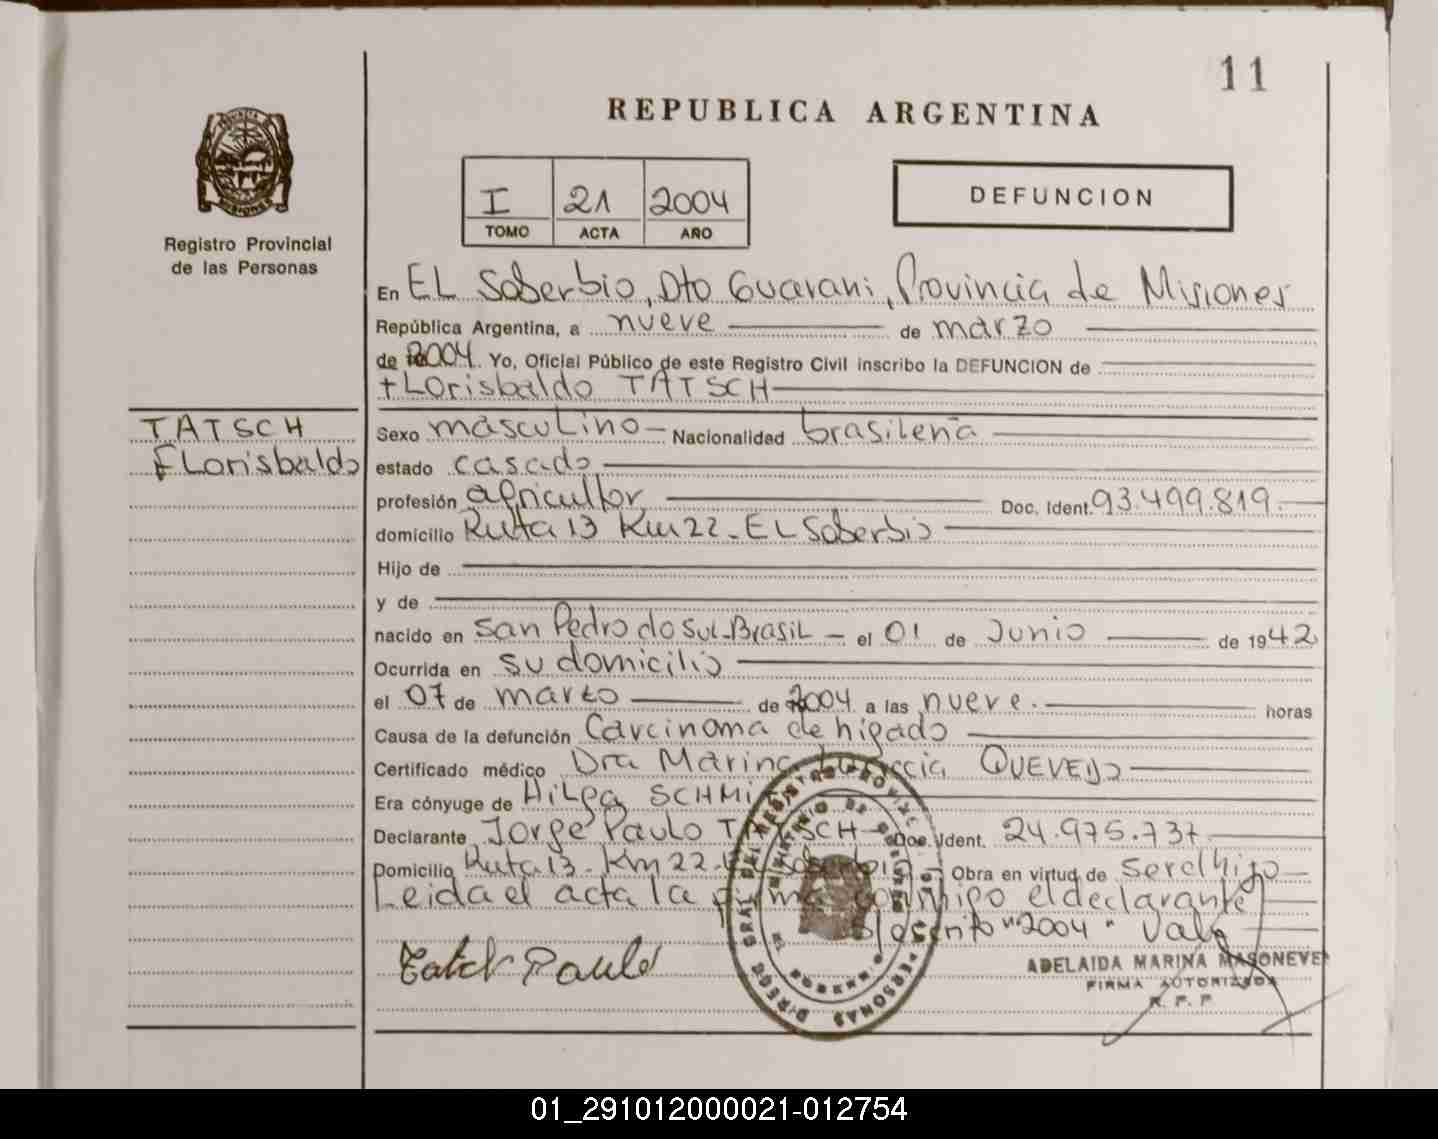 11
REPUBLICA ARGENTINA
I 21 2004
TOMO ACTA AÑO
DEFUNCION
Registro Provincial
de las Personas
En EL Soberbio, Dto Guarani, Provincia de Misiones
República Argentina, a nueve de marzo
de 2004 Yo, Oficial Público de este Registro Civil inscribo la DEFUNCION de
FLorisbaldo TATSCH
TATSCH
FLorisbaldo
Sexo masculino Nacionalidad brasileña
estado casado
profesión agricultor Doc. Ident. 93.499.819
domicilio Ruta 13 Km 22 - EL Soberbio
Hijo de
y de
nacido en San Pedro do Sul-Brasil el 01 de Junio de 1942
Ocurrida en su domicilio
el 07 de marzo de 2004 a las nueve. horas
Causa de la defunción Carcinoma de higado
Certificado médico Dra Marina QUEVEDO
Era cónyuge de HiLga SCHMI
Declarante Jorge Paulo TATSCH Doc. Ident. 24.975.737
Domicilio Ruta 13 - Km 22 - EL Soberbio Obra en virtud de ser el hijo
Leida el acta la firma conmigo el declarante
s/escrito "2004" Vale
Tatch Paulo
ADELAIDA MARINA MASONEVE
FIRMA AUTORIZADA
R. P. P
01_291012000021-012754